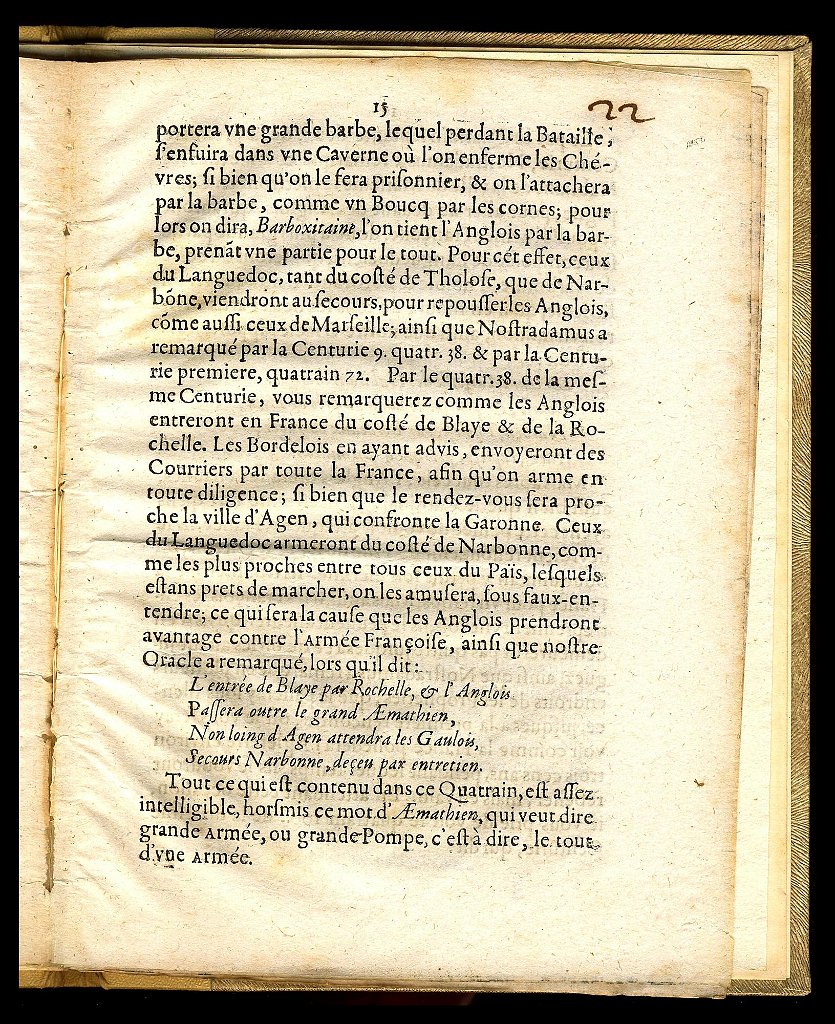 15
22
portera vne grande barbe, lequel perdant la Bataille,
ſ'enfuira dans vne Caverne où l'on enferme les Ché-
vres; ſi bien qu'on le fera priſonnier, & on l'attachera
par la barbe, comme vn Boucq par les cornes; pour
lors on dira, Barboxitaine, l'on tient l'Anglois par la bar-
be, prenãt vne partie pour le tout. Pour cét effet, ceux
du Languedoc, tant du coſté de Tholoſe, que de Nar-
bõne, viendront au ſecours, pour repouſſer les Anglois,
cõme auſſi ceux de Marſeille; ainſi que Noſtradamus a
remarqué par la Centurie 9. quatr. 38. & par la Centu-
rie premiere, quatrain 72. Par le quatr. 38. de la meſ-
me Centurie, vous remarquerez comme les Anglois
entreront en France du coſté de Blaye & de la Ro-
chelle. Les Bordelois en ayant advis, envoyeront des
Courriers par toute la France, afin qu'on arme en
toute diligence; ſi bien que le rendez-vous ſera pro-
che la ville d'Agen, qui confronte la Garonne. Ceux
du Languedoc armeront du coſté de Narbonne, com-
me les plus proches entre tous ceux du Païs, leſquels
eſtans prets de marcher, on les amuſera, ſous faux-en-
tendre; ce qui ſera la cauſe que les Anglois prendront
avantage contre l'Armée Françoiſe, ainſi que noſtre
Oracle a remarqué, lors qu'il dit:
L'entrée de Blaye par Rochelle, & l'Anglois
Paſſera outre le grand Æmathien,
Non loing d'Agen attendra les Gaulois,
Secours Narbonne, deçeu par entretien.
Tout ce qui eſt contenu dans ce Quatrain, eſt aſſez
intelligible, horſmis ce mot d'Æmathien, qui veut dire
grande Armée, ou grande Pompe, c'eſt à dire, le tout
d'vne Armée.